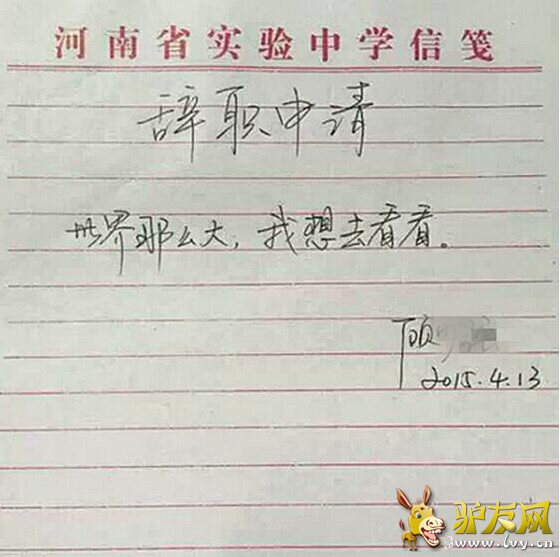 河南省实验中学信笺
辞职申请
世界那么大，我想去看看。
顾
2015.4.13
驴友网
www.lvy.cn